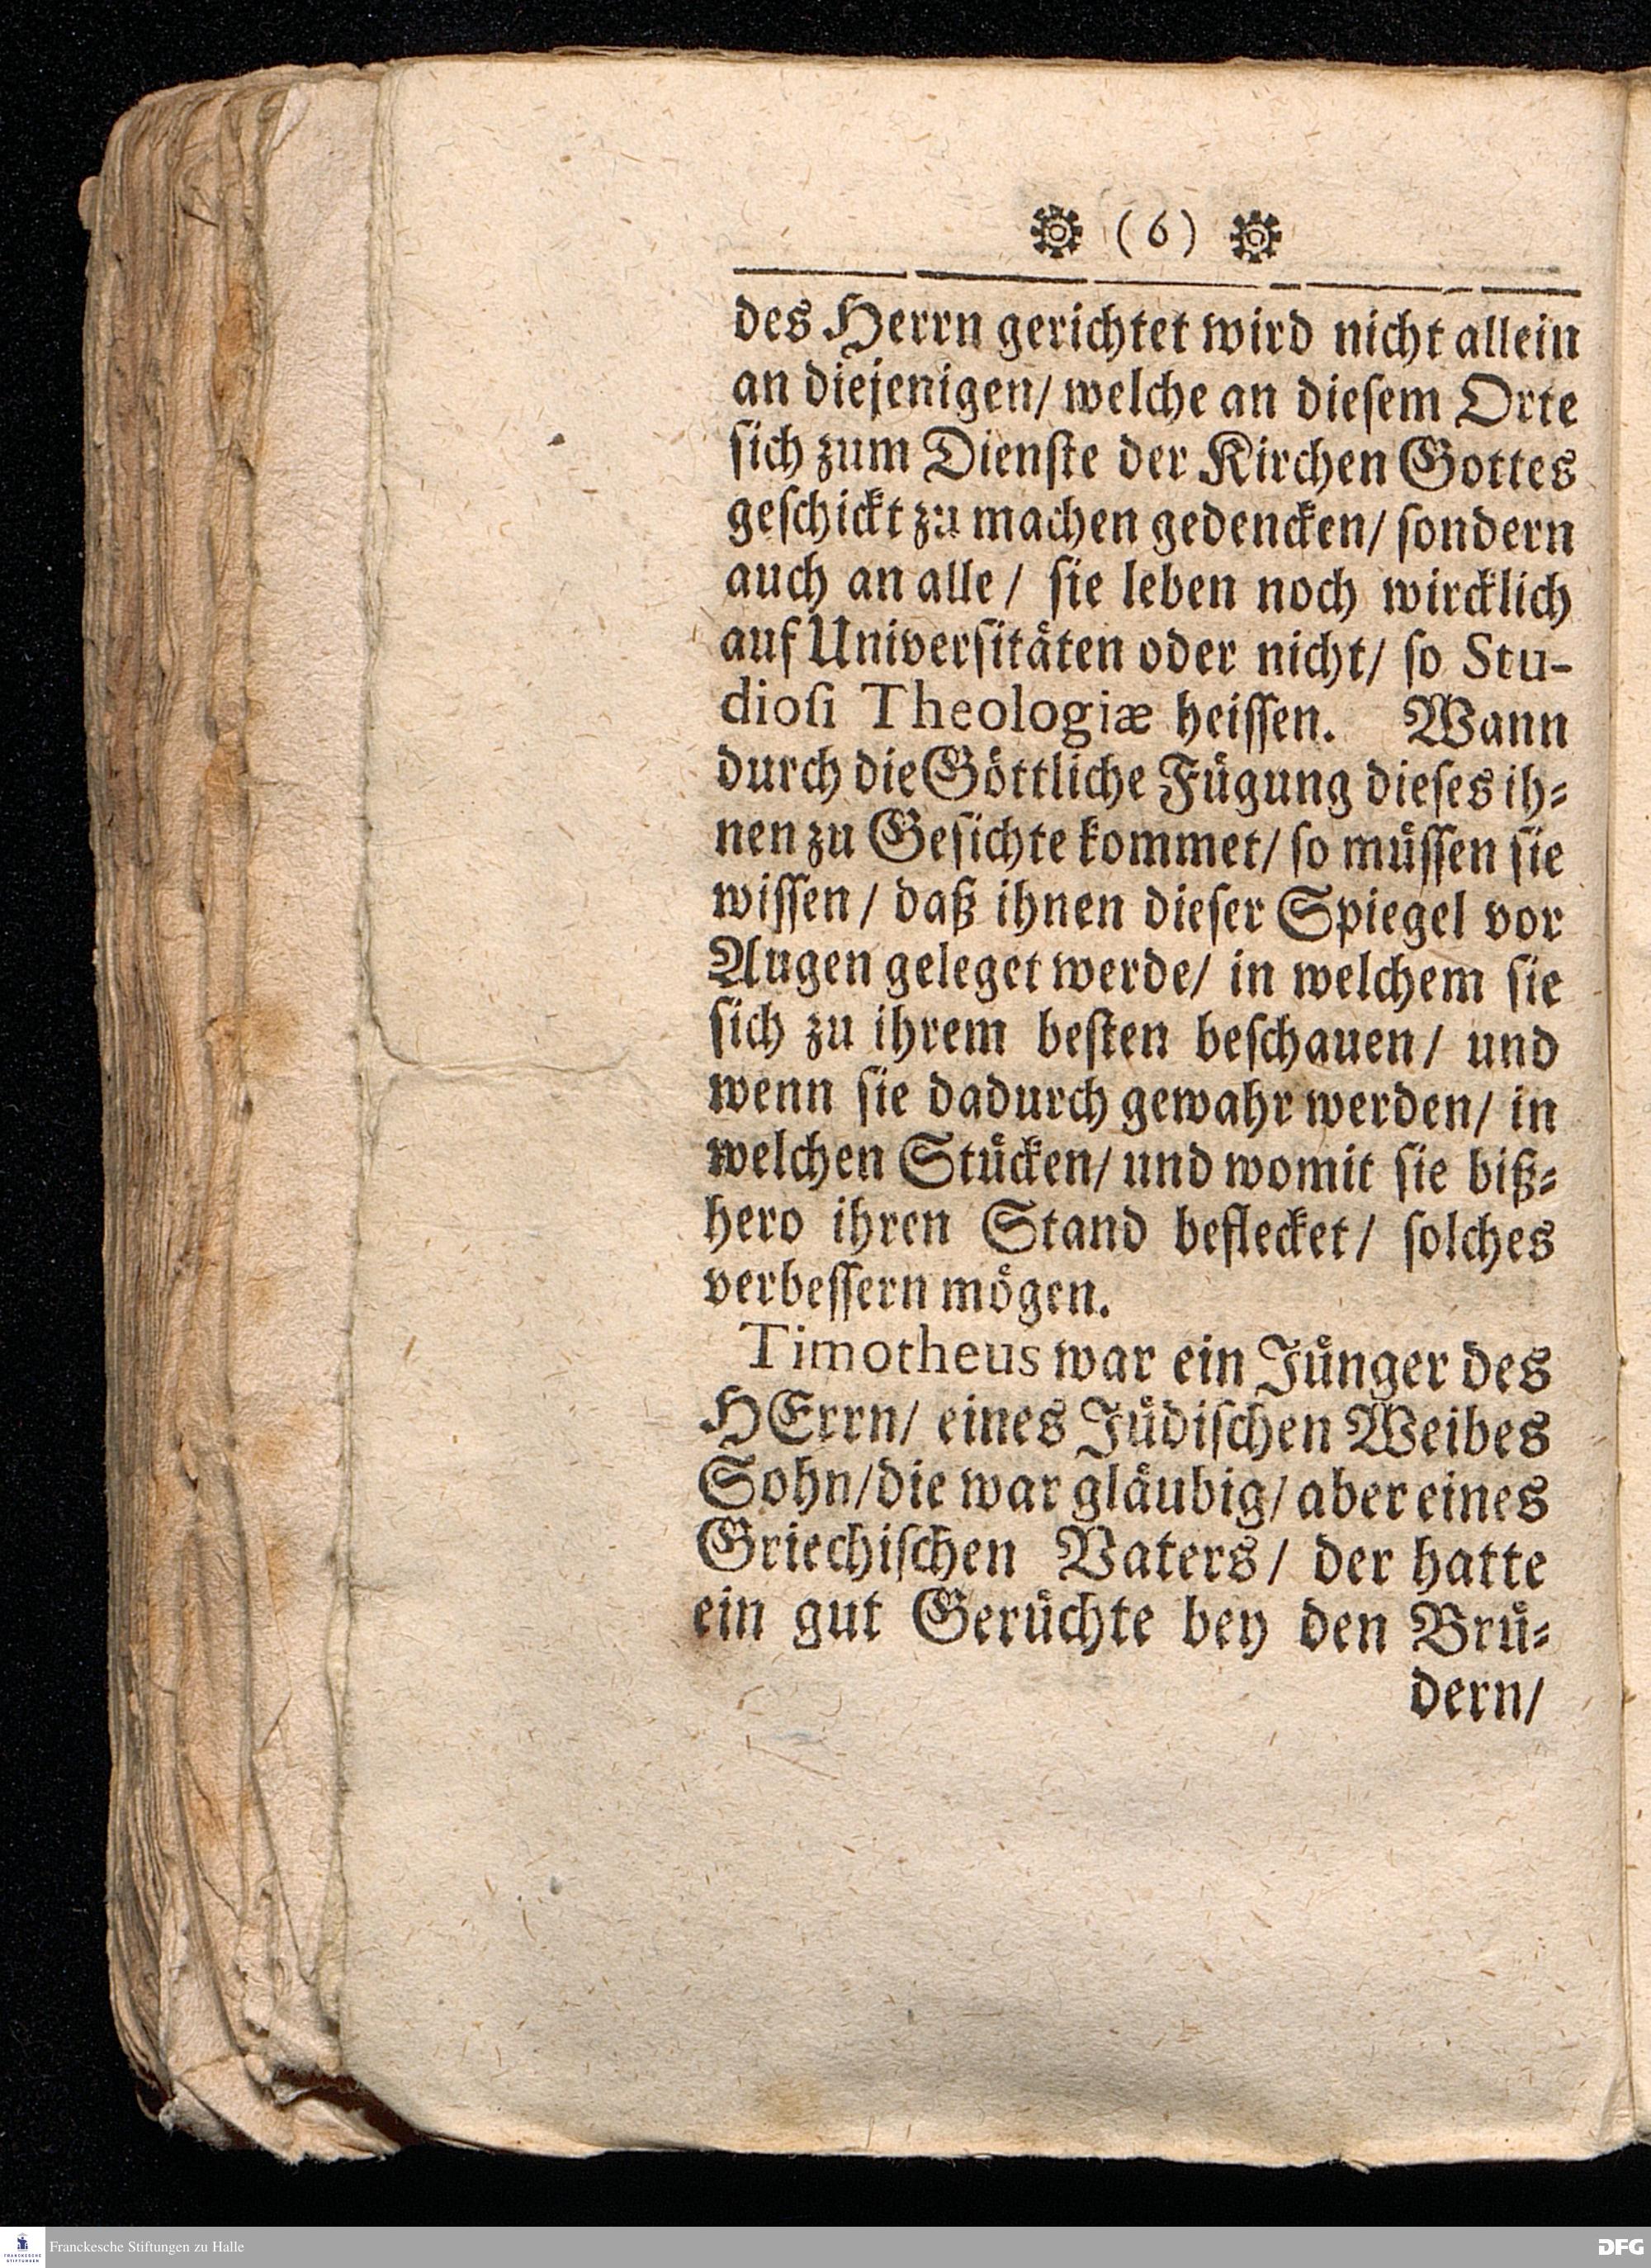 (6)
des Herrn gerichtet wird nicht allein
an diejenigen/ welche an diesem Orte
sich zum Dienste der Kirchen Gottes
geschickt zu machen gedencken/ sondern
auch an alle/ sie leben noch wircklich
auf Universitäten oder nicht/ so Stu-
diosi Theologiæ heissen. Wann
durch die Göttliche Fügung dieses ih-
nen zu Gesichte kommet/ so müssen sie
wissen/ daß ihnen dieser Spiegel vor
Augen geleget werde/ in welchem sie
sich zu ihrem besten beschauen/ und
wenn sie dadurch gewahr werden/ in
welchen Stücken/ und womit sie biß-
hero ihren Stand beflecket/ solches
verbessern mögen.
Timotheus war ein Jünger des
HErrn/ eines Jüdischen Weibes
Sohn/ die war gläubig/ aber eines
Griechischen Vaters/ der hatte
ein gut Gerüchte bey den Brü-
dern/
FRANCKESCHE
STIFTUNGEN
Franckesche Stiftungen zu Halle
DFG